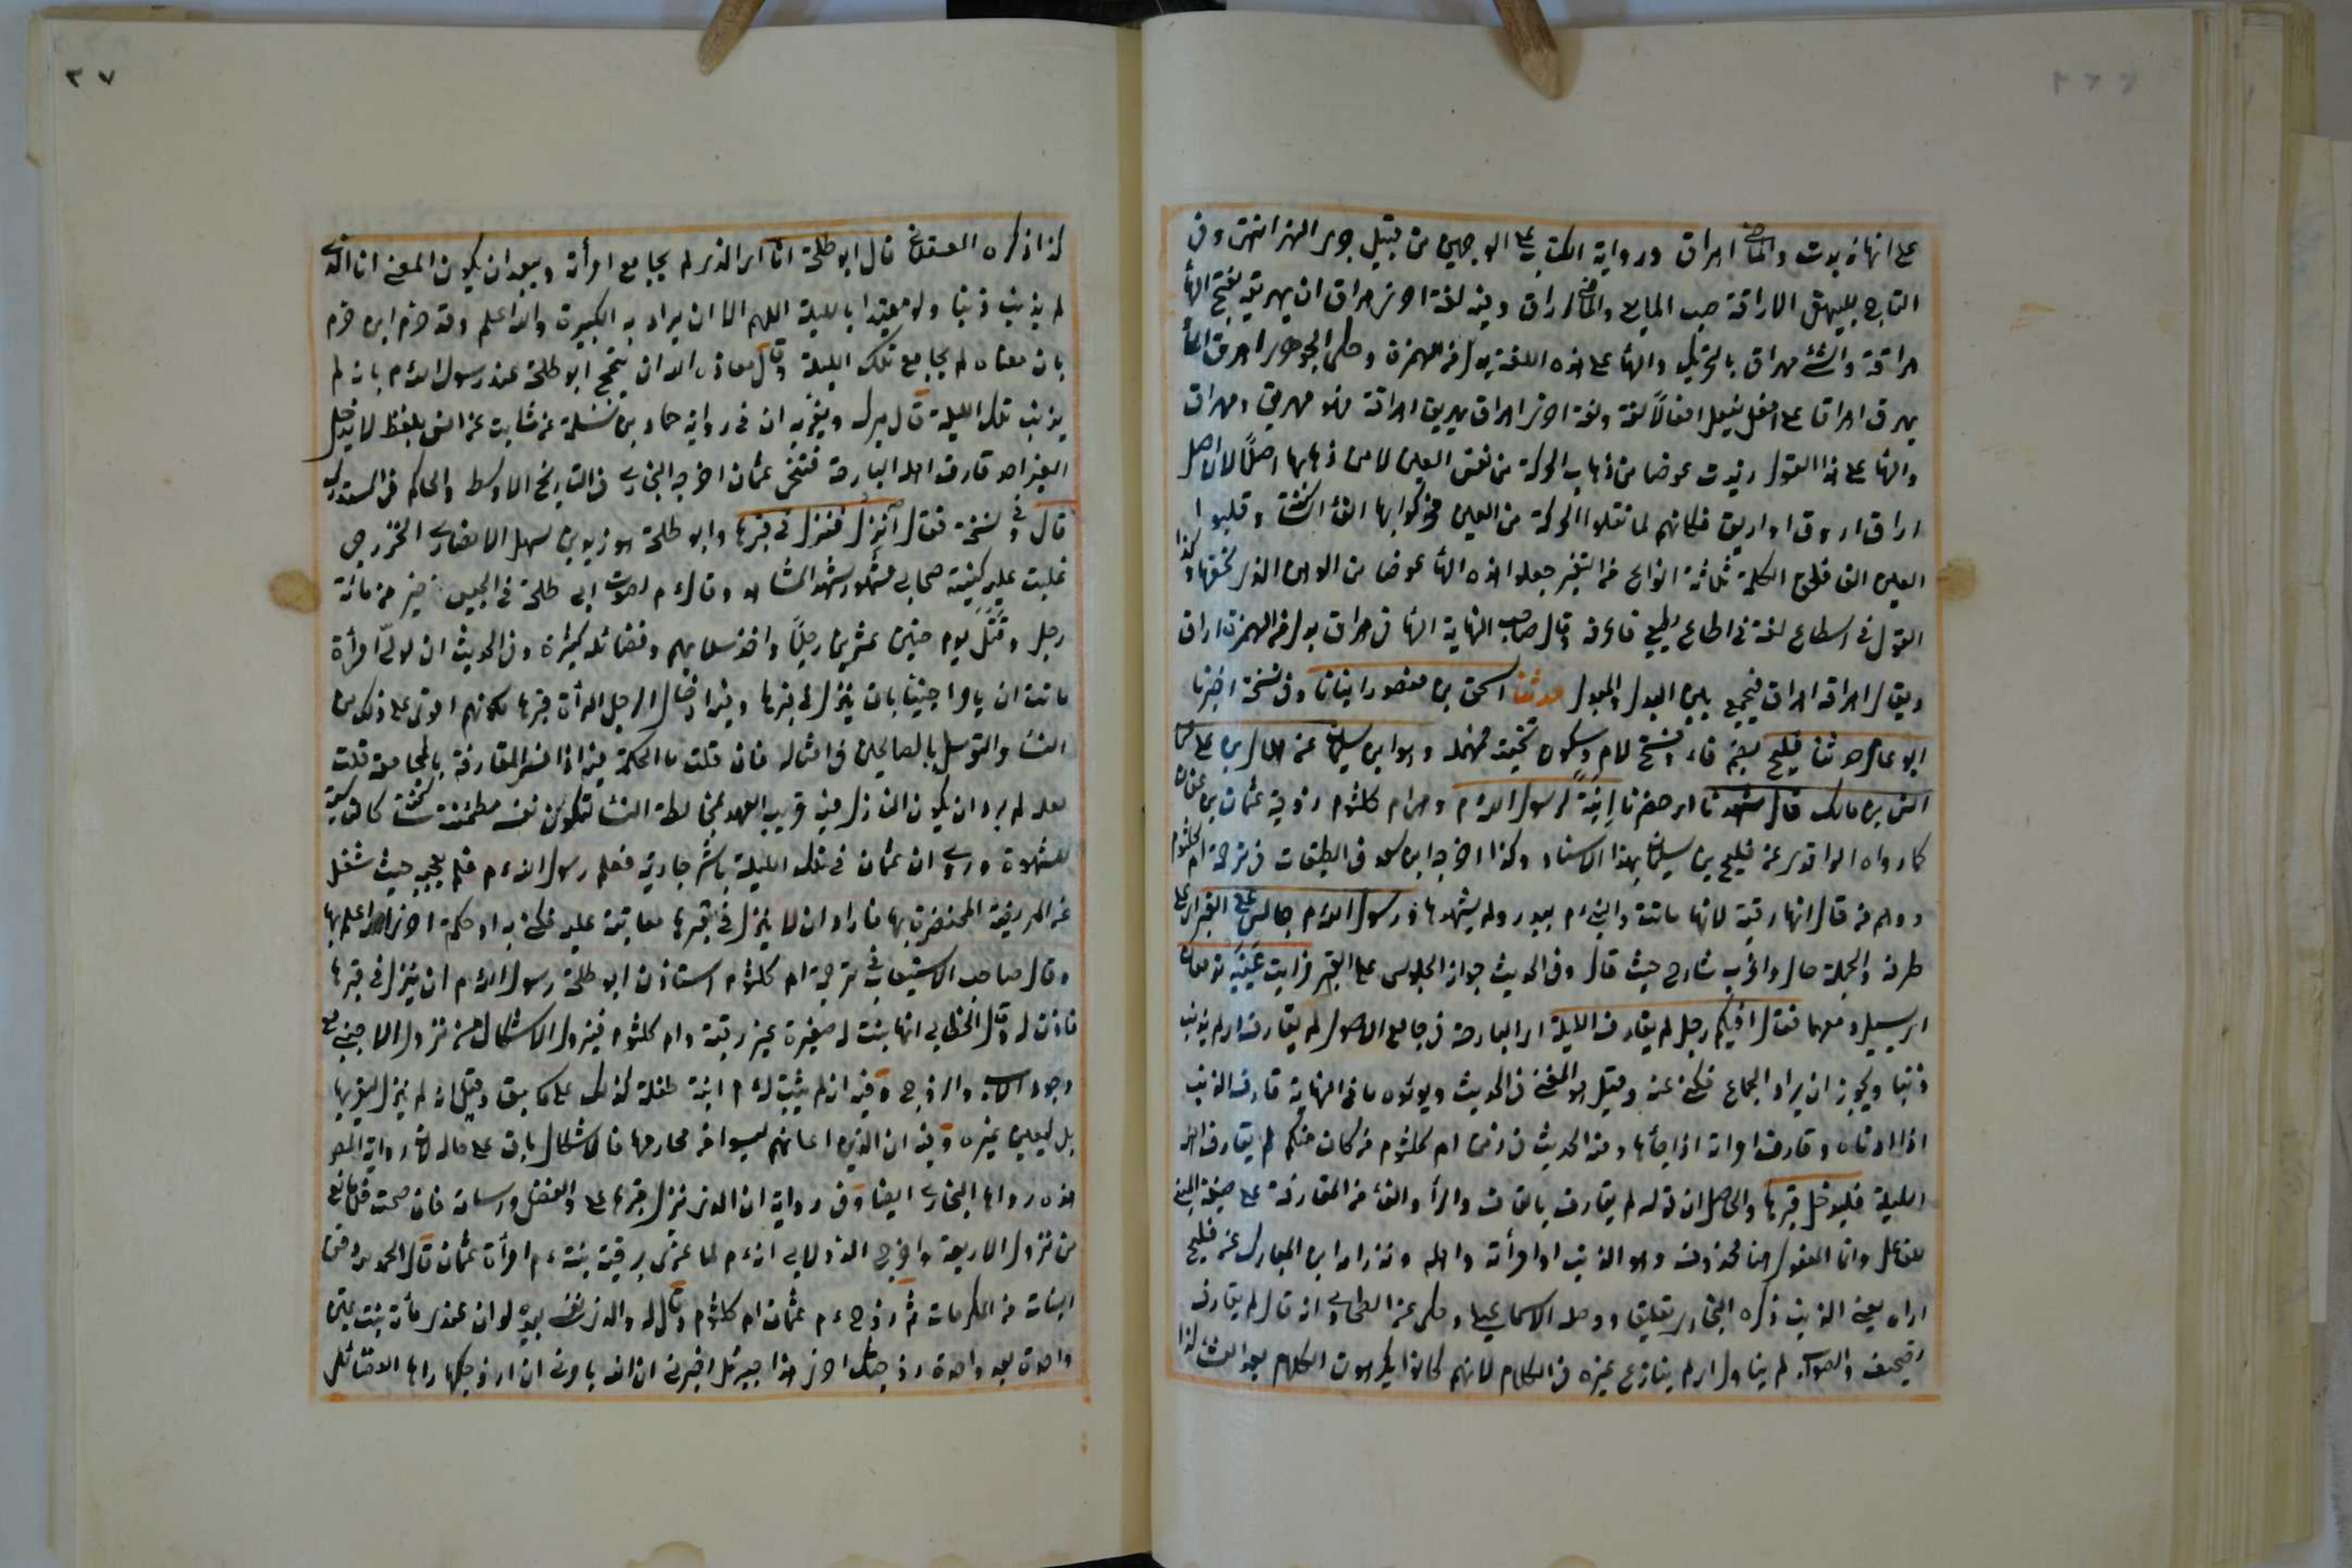 على انها زيدت والماضي اهراق ورواية الكتاب على الوجهين من قبيل جرى النهر انتهى وفى
التاج للبيهقى الاراقة صب المايع والماضى اراق وفيه لغة اخرى هراق الماء يهريقه بفتح الهاء
هراقة والشئ مهراق بالتحريك والهاء على هذه اللغة بدل من الهمزة وحكى الجوهرى اهرق الماء
يهرق اهراقا على افعل يفعل افعالا لغة ولغة اخرى اهراق يهريق اهراقة فهو مهريق ومهراق
والهاء على هذا القول زيدت عوضا من ذهاب الحركة من نفس العين لا من ذهابها اصلا لان اصل
اراق اروق او اريق فكانهم لما نقلوا الحركة من العين فحركوا بها الفاء الساكنة وقلبوا
العين الفا فلحق الكلمة ثلاثة انواع من التغيير جعلوا هذه الهاء عوضا من الوهن الذى لحقها وكذا
القول فى اسطاع لغة فى اطاع يطيع فاعرفه وقال صاحب النهاية الهاء فى هراق بدل من الهمزة اراق
ويقال اهراقه اهراق فيجمع بين البدل والمبدل حدثنا اسحق بن منصور انبانا وفى نسخة اخبرنا
ابو عامر حدثنا فليح بضم فاء وفتح لام وسكون تحتية فمهملة وهو ابن سليمان عن هلال بن على عن
انس بن مالك قال شهدنا اى حضرنا ابنة لرسول الله م وهى ام كلثوم زوجة عثمان بن عفان
كما رواه الواقدى عن فليح بن سليمان بهذا الاسناد وكذا اخرجه ابن سعد فى الطبقات فى ترجمة ام كلثوم
ووهم من قال انها رقية لانها ماتت والنبى ءم ببدر ولم يشهدها ورسول الله م جالس على القبر اى على
طرفه والجملة حال واغرب شارح حيث قال وفى الحديث جواز الجلوس على القبر فرايت عينيه تدمعان
اى يسيل دمعهما فقال افيكم رجل لم يقارف الليلة اى البارحة فى جامع الاصول لم يقارف اى لم يذنب
ذنبا ويجوز ان يراد الجماع فكنى عنه وقيل هو المعنى فى الحديث ويؤيده ما فى النهاية قارف الذنب
اذا داناه وقارف امراته اذا جامعها ومنه الحديث فى دفن ام كلثوم من كان منكم لم يقارف اهله
الليلة فليدخل قبرها والحاصل ان قوله لم يقارف بالقاف والراء والفاء من المقارفة على صيغة المبنى
للفاعل واما المفعول هنا محذوف وهو الذنب او امرأته واهله وقد زاد ابن المبارك عن فليح
اراه يعنى الذنب ذكره البخارى تعليقا ووصله الاسماعيلى وحكى عن الطحاوى انه قال لم يقارف
تصحيف والصواب لم يقاول اى لم ينازع غيره فى الكلام لانهم كانوا يكرهون الكلام بعد العشاء كذا
كذا ذكره العسقلانى قال ابو طلحة انا اى الذى لم يجامع امرأته ويبعد ان يكون المعنى انا الذى
لم يذنب ذنبا ولا مقيدا بالليلة اللهم الا ان يراد به الكبيرة والله اعلم وقد جزم ابن حزم
بان معناه لم يجامع تلك الليلة وقال معاذ الله ان يتبجح ابو طلحة عند رسول الله م بانه لم
يذنب تلك الليلة قال ميرك ويقويه ان فى رواية حماد بن سلمة عن ثابت عن انس بلفظ لا يدخل
القبر احد قارف اهله البارحة فتنحى عثمان اخرجه البخارى فى التاريخ الاوسط والحاكم فى المستدرك
قال وفى نسخة فقال انزل فنزل فى قبرها وابو طلحة هو زيد بن سهل الانصارى الخزرجى
غلبت عليه كنيته صحابى مشهور شهد المشاهد وقال ءم لصوت ابى طلحة فى الجيش خير من مائة
رجل وقتل يوم حنين عشرين رجلا واخذ سلبهم وفضائله كثيرة وفى الحديث ان لولى امرأة
ماتت ان يامر اجنبيا بان ينزل فى قبرها وفيه ادخال الرجل المرأة قبرها لكونهم اقوى على ذلك من
النساء والتوسل بالصالحين فى امثاله فان قلت ما الحكمة فيه اذا فسر المقارفة بالمجامعة قلت
لعله لم يرد ان يكون النازل فيه قريب العهد بمخالطة النساء لتكون نفسه مطمئنة ساكنة كالناسية
للشهوة وروى ان عثمان فى تلك الليلة باشر جارية فعلم رسول الله ءم فلم يعجبه حيث شغل
عن المريضة المحتضرة بها فاراد ان لا ينزل فى قبرها معاتبة عليه فكنى به او حكمة اخرى الله اعلم بها
وقال صاحب الاستيعاب فى ترجمة ام كلثوم استاذن ابو طلحة رسول الله م ان ينزل فى قبرها
فاذن له وقال الخطابى انها بنت له صغيرة غير رقية وام كلثوم فيزول الاشكال من نزول الاجنبى مع
وجود الاب والزوج وفيه انه لم يثبت له ءم ابنة طفلة كذلك على ما سبق وقيل انه لم ينزل ليقبرها
بل ليعين غيره وفيه ان الذين اعانهم ليسوا من محارمها فالاشكال باق على حاله
هذه رواها البخارى ايضا وفى رواية ان الذى نزل قبرها على والفضل واسامة فان صحت فلا مانع
من نزول الاربعة واخرج الدولابى انه ءم لما عزى برقية بنته ءم امرأة عثمان قال الحمد لله دفن
البنات من المكرمات ثم زوج ءم عثمان ام كلثوم وقال له والذى نفسى بيده لو ان عندى مائة بنت يمتن
واحدة بعد واحدة زوجتك اخرى هذا جبرئيل اخبرنى ان الله يامرنى ان ازوجكها رواها الفضائلى